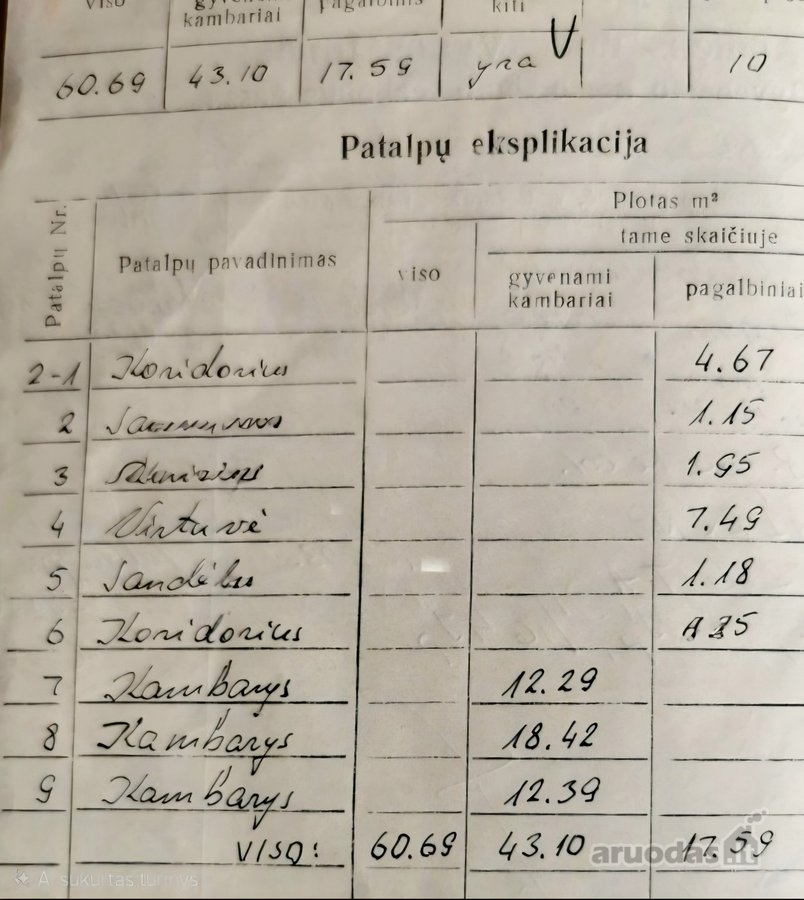 viso gyvenami kambariai pagalbinis kiti
60.69 43.10 17.59 yra V 10
Patalpų eksplikacija
Patalpų Nr. Patalpų pavadinimas Plotas m²
viso tame skaičiuje
gyvenami kambariai pagalbiniai
2-1 Koridorius 4.67
2 1.15
3 1.95
4 Virtuvė 7.49
5 Sandėlis 1.18
6 Koridorius
7 Kambarys 12.29
8 Kambarys 18.42
9 Kambarys 12.39
VISO: 60.69 43.10 17.59
aruodas.lt
AI sukurtas turinys